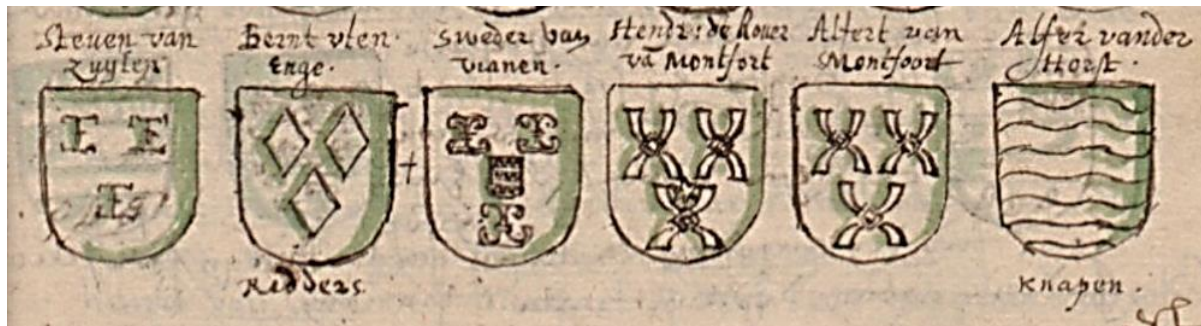 Steven van
Zuylen
Bernt vten
Enge.
Sweder van
Vianen.
Hendr: de Rover
vā Montfort
Alfert van
Montfoort
Alfer vander
Horst.
Ridders
Knapen.